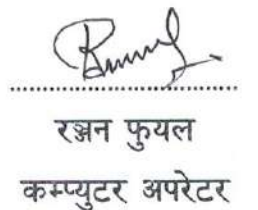 रञ्जन फुयल
कम्प्युटर अपरेटर